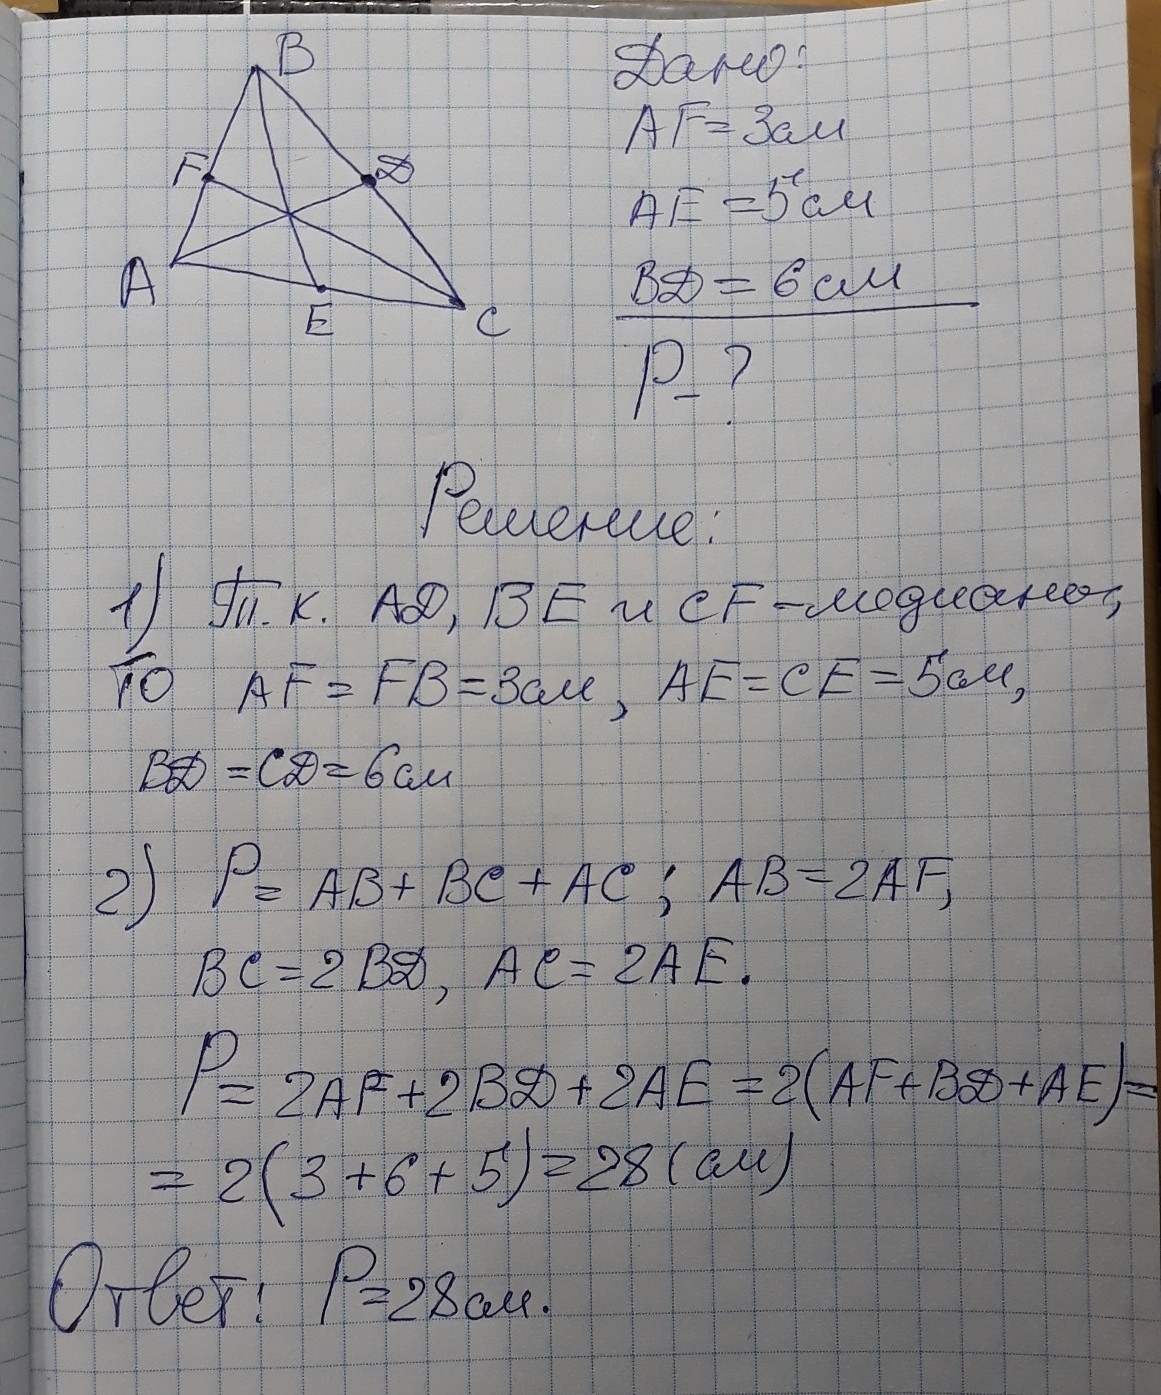 B
F
D
A
E
C
Дано:
AF = 3см
AE = 5см
BD = 6см
P - ?
Решение:
1) Т.к. AD, BE и CF - медианы,
то AF = FB = 3см, AE = CE = 5см,
BD = CD = 6см
2) P = AB + BC + AC ; AB = 2AF,
BC = 2BD, AC = 2AE.
P = 2AF + 2BD + 2AE = 2(AF + BD + AE) =
= 2(3 + 6 + 5) = 28 (см)
Ответ: P = 28см.